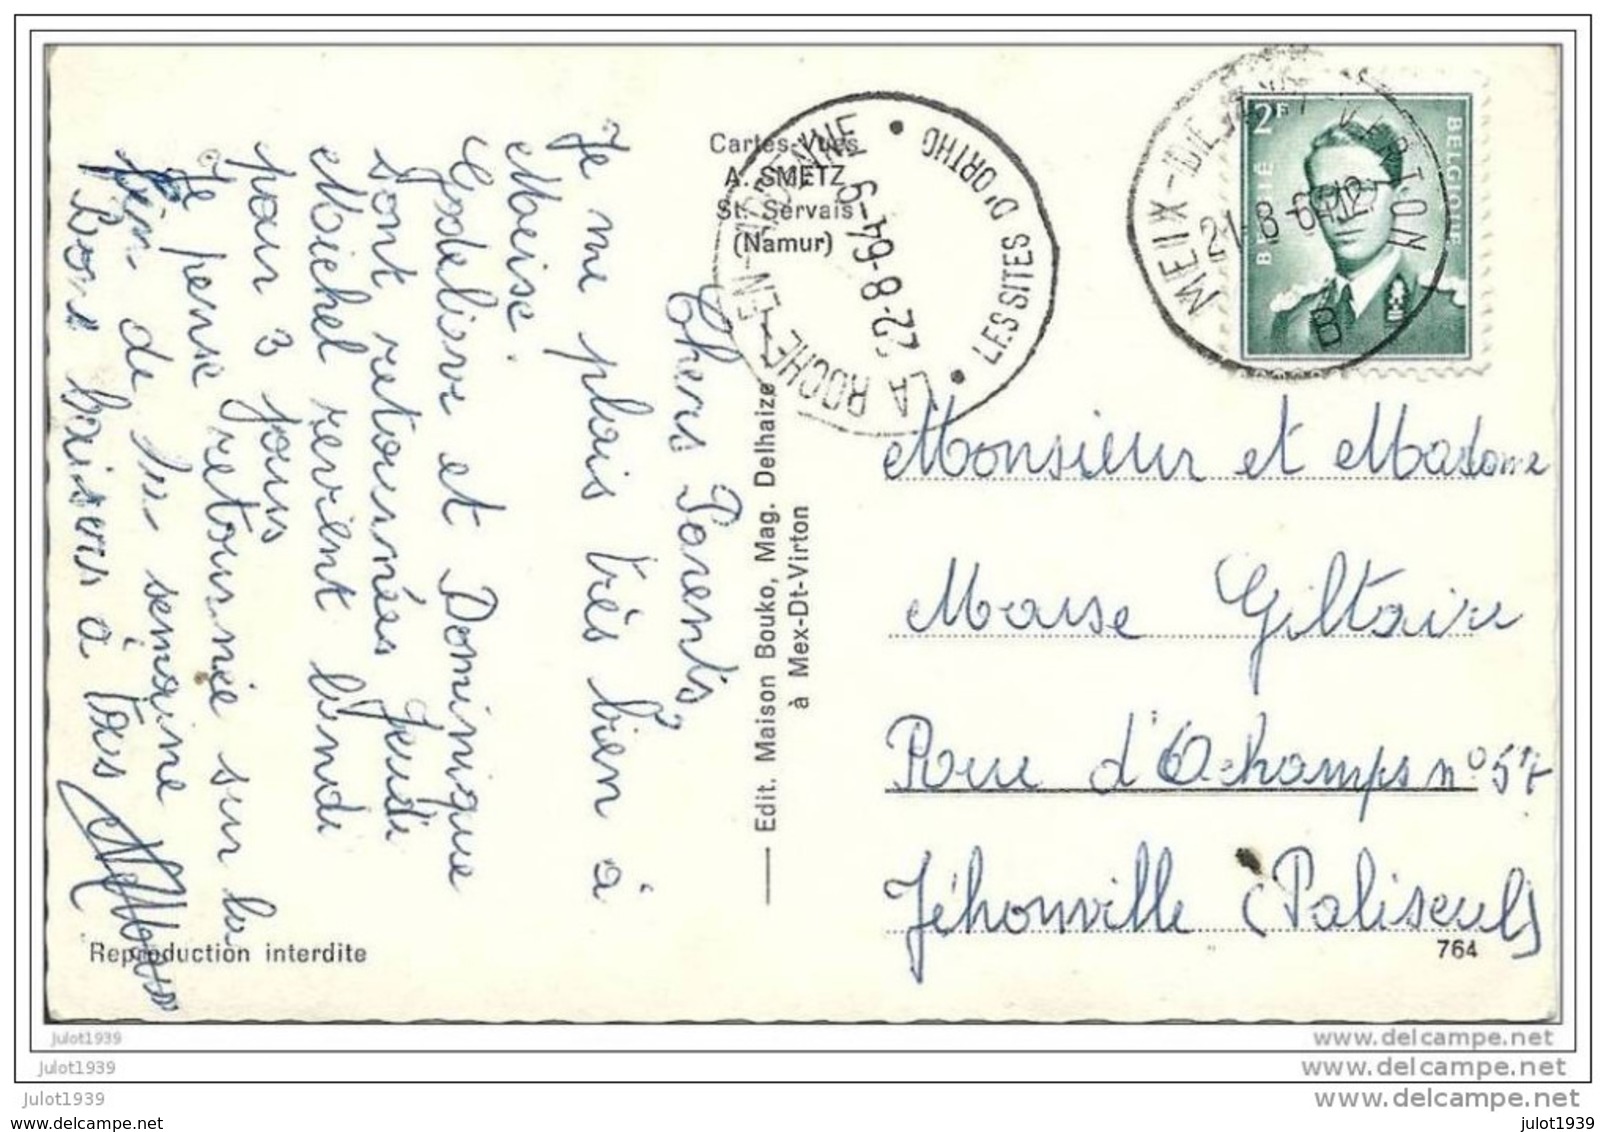 Chers Parents,
Je me plais très bien à
Meise.
Godelieve et Dominique
sont retournées Jeudi
Michel revient lundi
pour 3 jours
Je pense retourner sur la
fin de la semaine
Bons baisers à tous
Reproduction interdite
Cartes-Vues
A. SMETZ
St. Servais
(Namur)
Edit. Maison Bouko, Mag. Delhaize
à Mex-Dt-Virton
LA ROCHE-EN-ARDENNE
22-8-64-9
LES SITES D'ORTHO
MEIX-DEVANT-VIRTON
21-8-64 12
B
2F
BELGIË
BELGIQUE
Monsieur et Madame
Marse Giltaire
Rue d'Ochamps n°57
Jéhonville (Paliseul)
764
julot1939
www.delcampe.net
julot1939
www.delcampe.net
julot1939
www.delcampe.net
julot1939
www.delcampe.net
julot1939